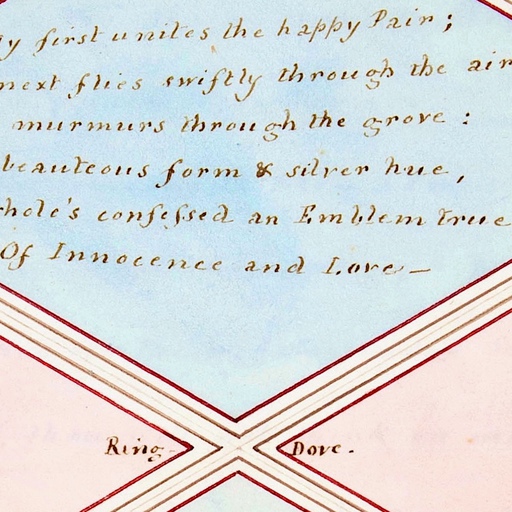 first unites the happy Pair;
next flies swiftly through the air
murmurs through the grove:
beauteous form & silver hue,
hole's confessed an Emblem true
Of Innocence and Love—
Ring- Dove.